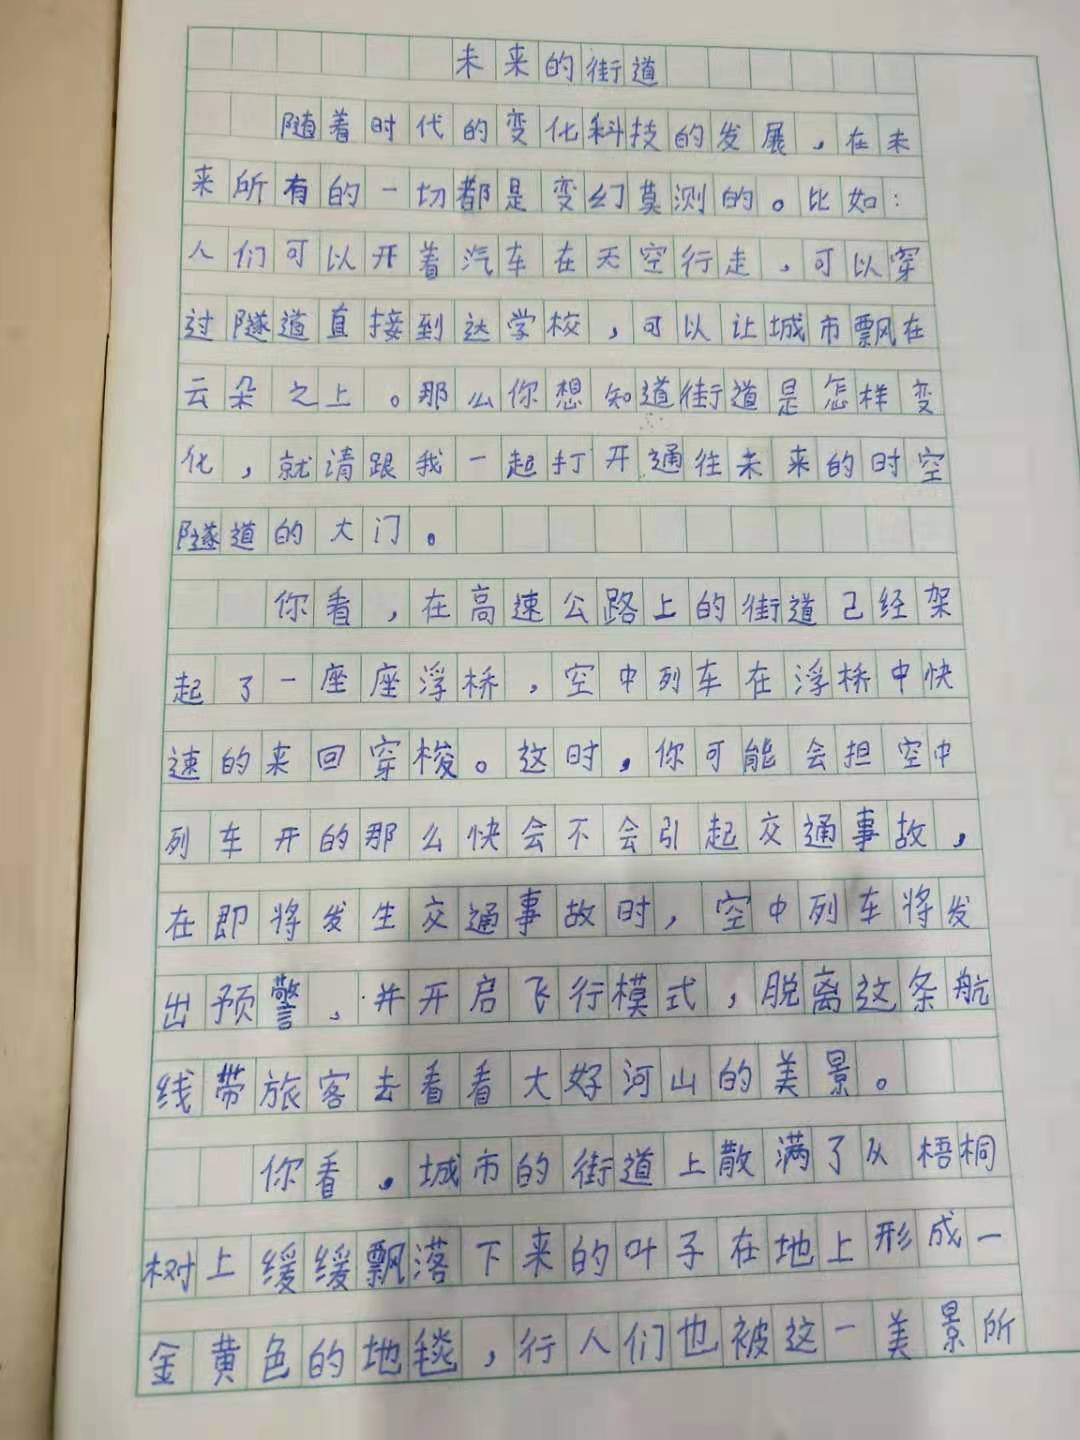 未来的街道
随着时代的变化科技的发展，在未
来所有的一切都是变幻莫测的。比如：
人们可以开着汽车在天空行走，可以穿
过隧道直接到达学校，可以让城市飘在
云朵之上。那么你想知道街道是怎样变
化，就请跟我一起打开通往未来的时空
隧道的大门。
你看，在高速公路上的街道已经架
起了一座座浮桥，空中列车在浮桥中快
速的来回穿梭。这时，你可能会担空中
列车开的那么快会不会引起交通事故，
在即将发生交通事故时，空中列车将发
出预警，并开启飞行模式，脱离这条航
线带旅客去看看大好河山的美景。
你看，城市的街道上散满了从梧桐
树上缓缓飘落下来的叶子在地上形成一
金黄色的地毯，行人们也被这一美景所